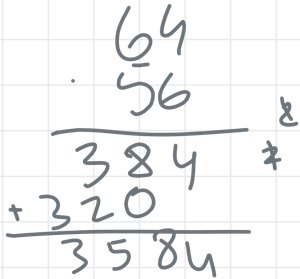 64
· 56
384
+ 320
3584